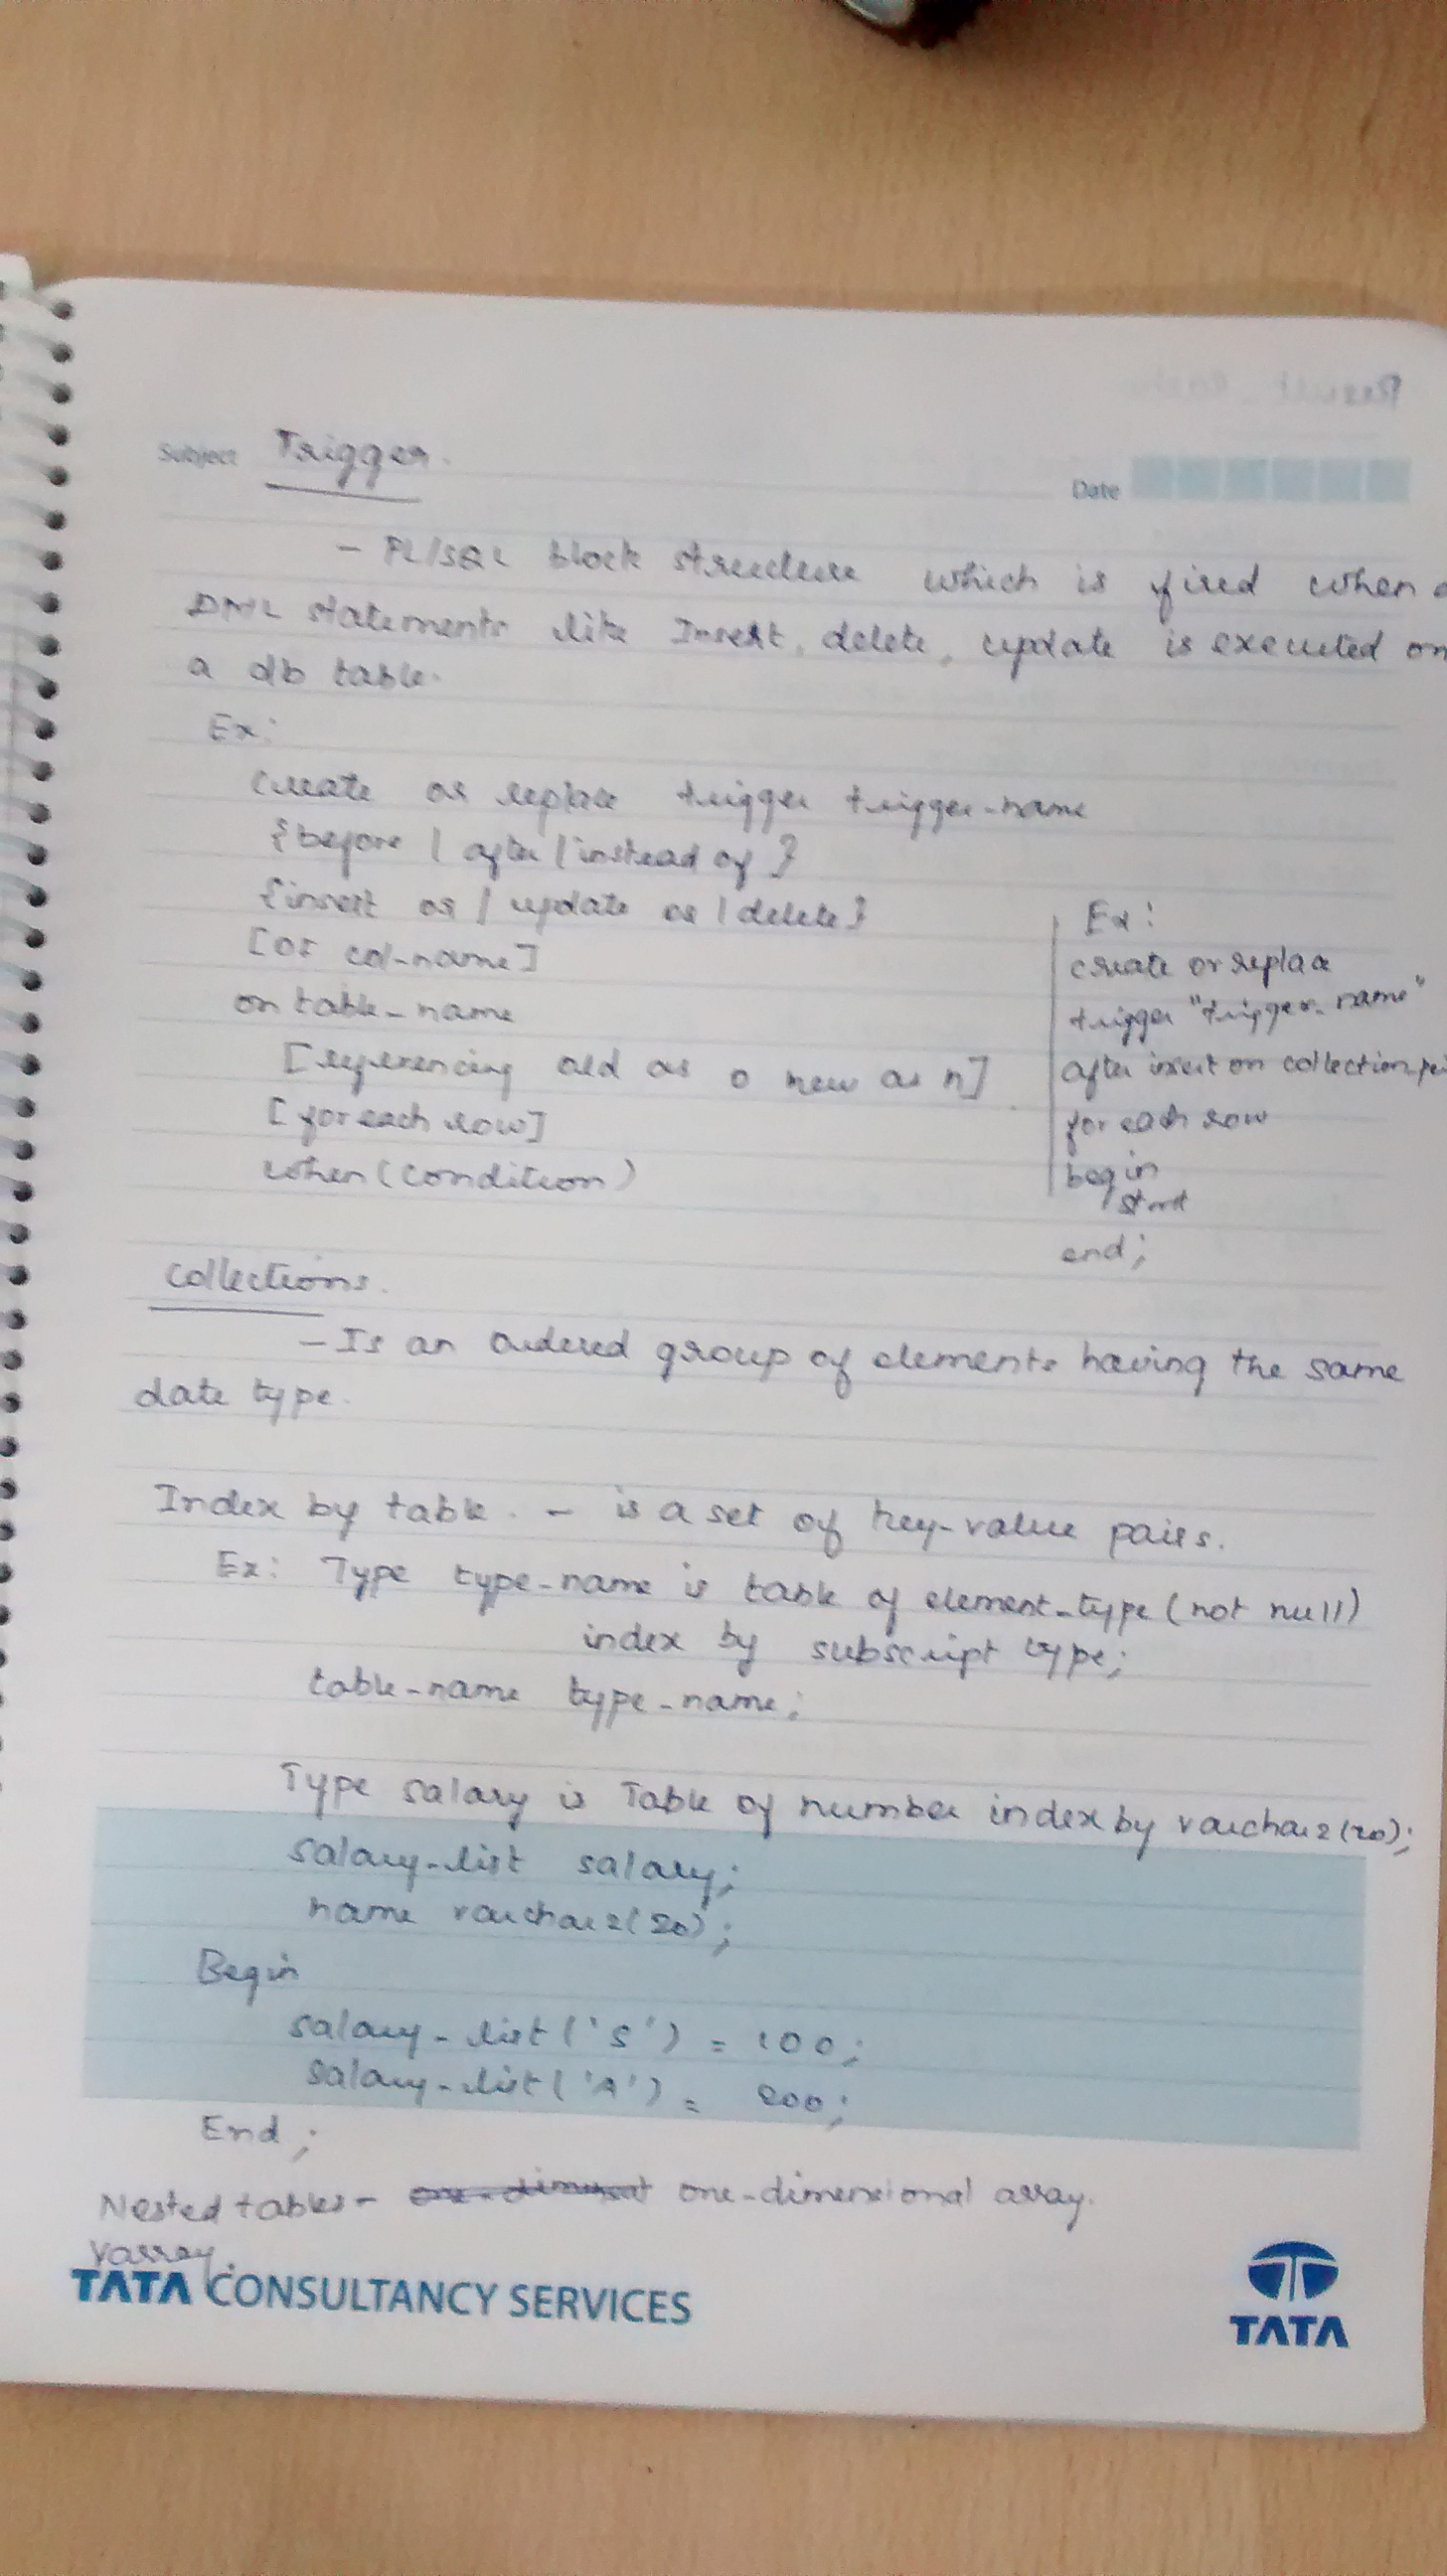 Subject Trigger.
Date
- PL/SQL block structure which is fired when a
DML statements like Insert, delete, update is executed on
a db table.
Ex:
create or replace trigger trigger-name
{before | after | instead of }
{insert or | update or | delete}
[of col-name]
on table-name
[referencing old as o new as n]
[for each row]
when (condition)
Ex:
create or replace
trigger "trigger-name"
after insert on collection
for each row
begin
stmt
end;
collections.
- Is an ordered group of elements having the same
date type.
Index by table. - is a set of key-value pairs.
Ex: Type type-name is table of element-type (not null)
index by subscript type;
table-name type-name;
Type salary is Table of number index by varchar2(20);
salary-list salary;
name varchar2(20);
Begin
salary-list('S') = 100;
salary-list('A') = 200;
End;
Nested tables - one-dimensional array.
Varray.
TATA CONSULTANCY SERVICES
TATA